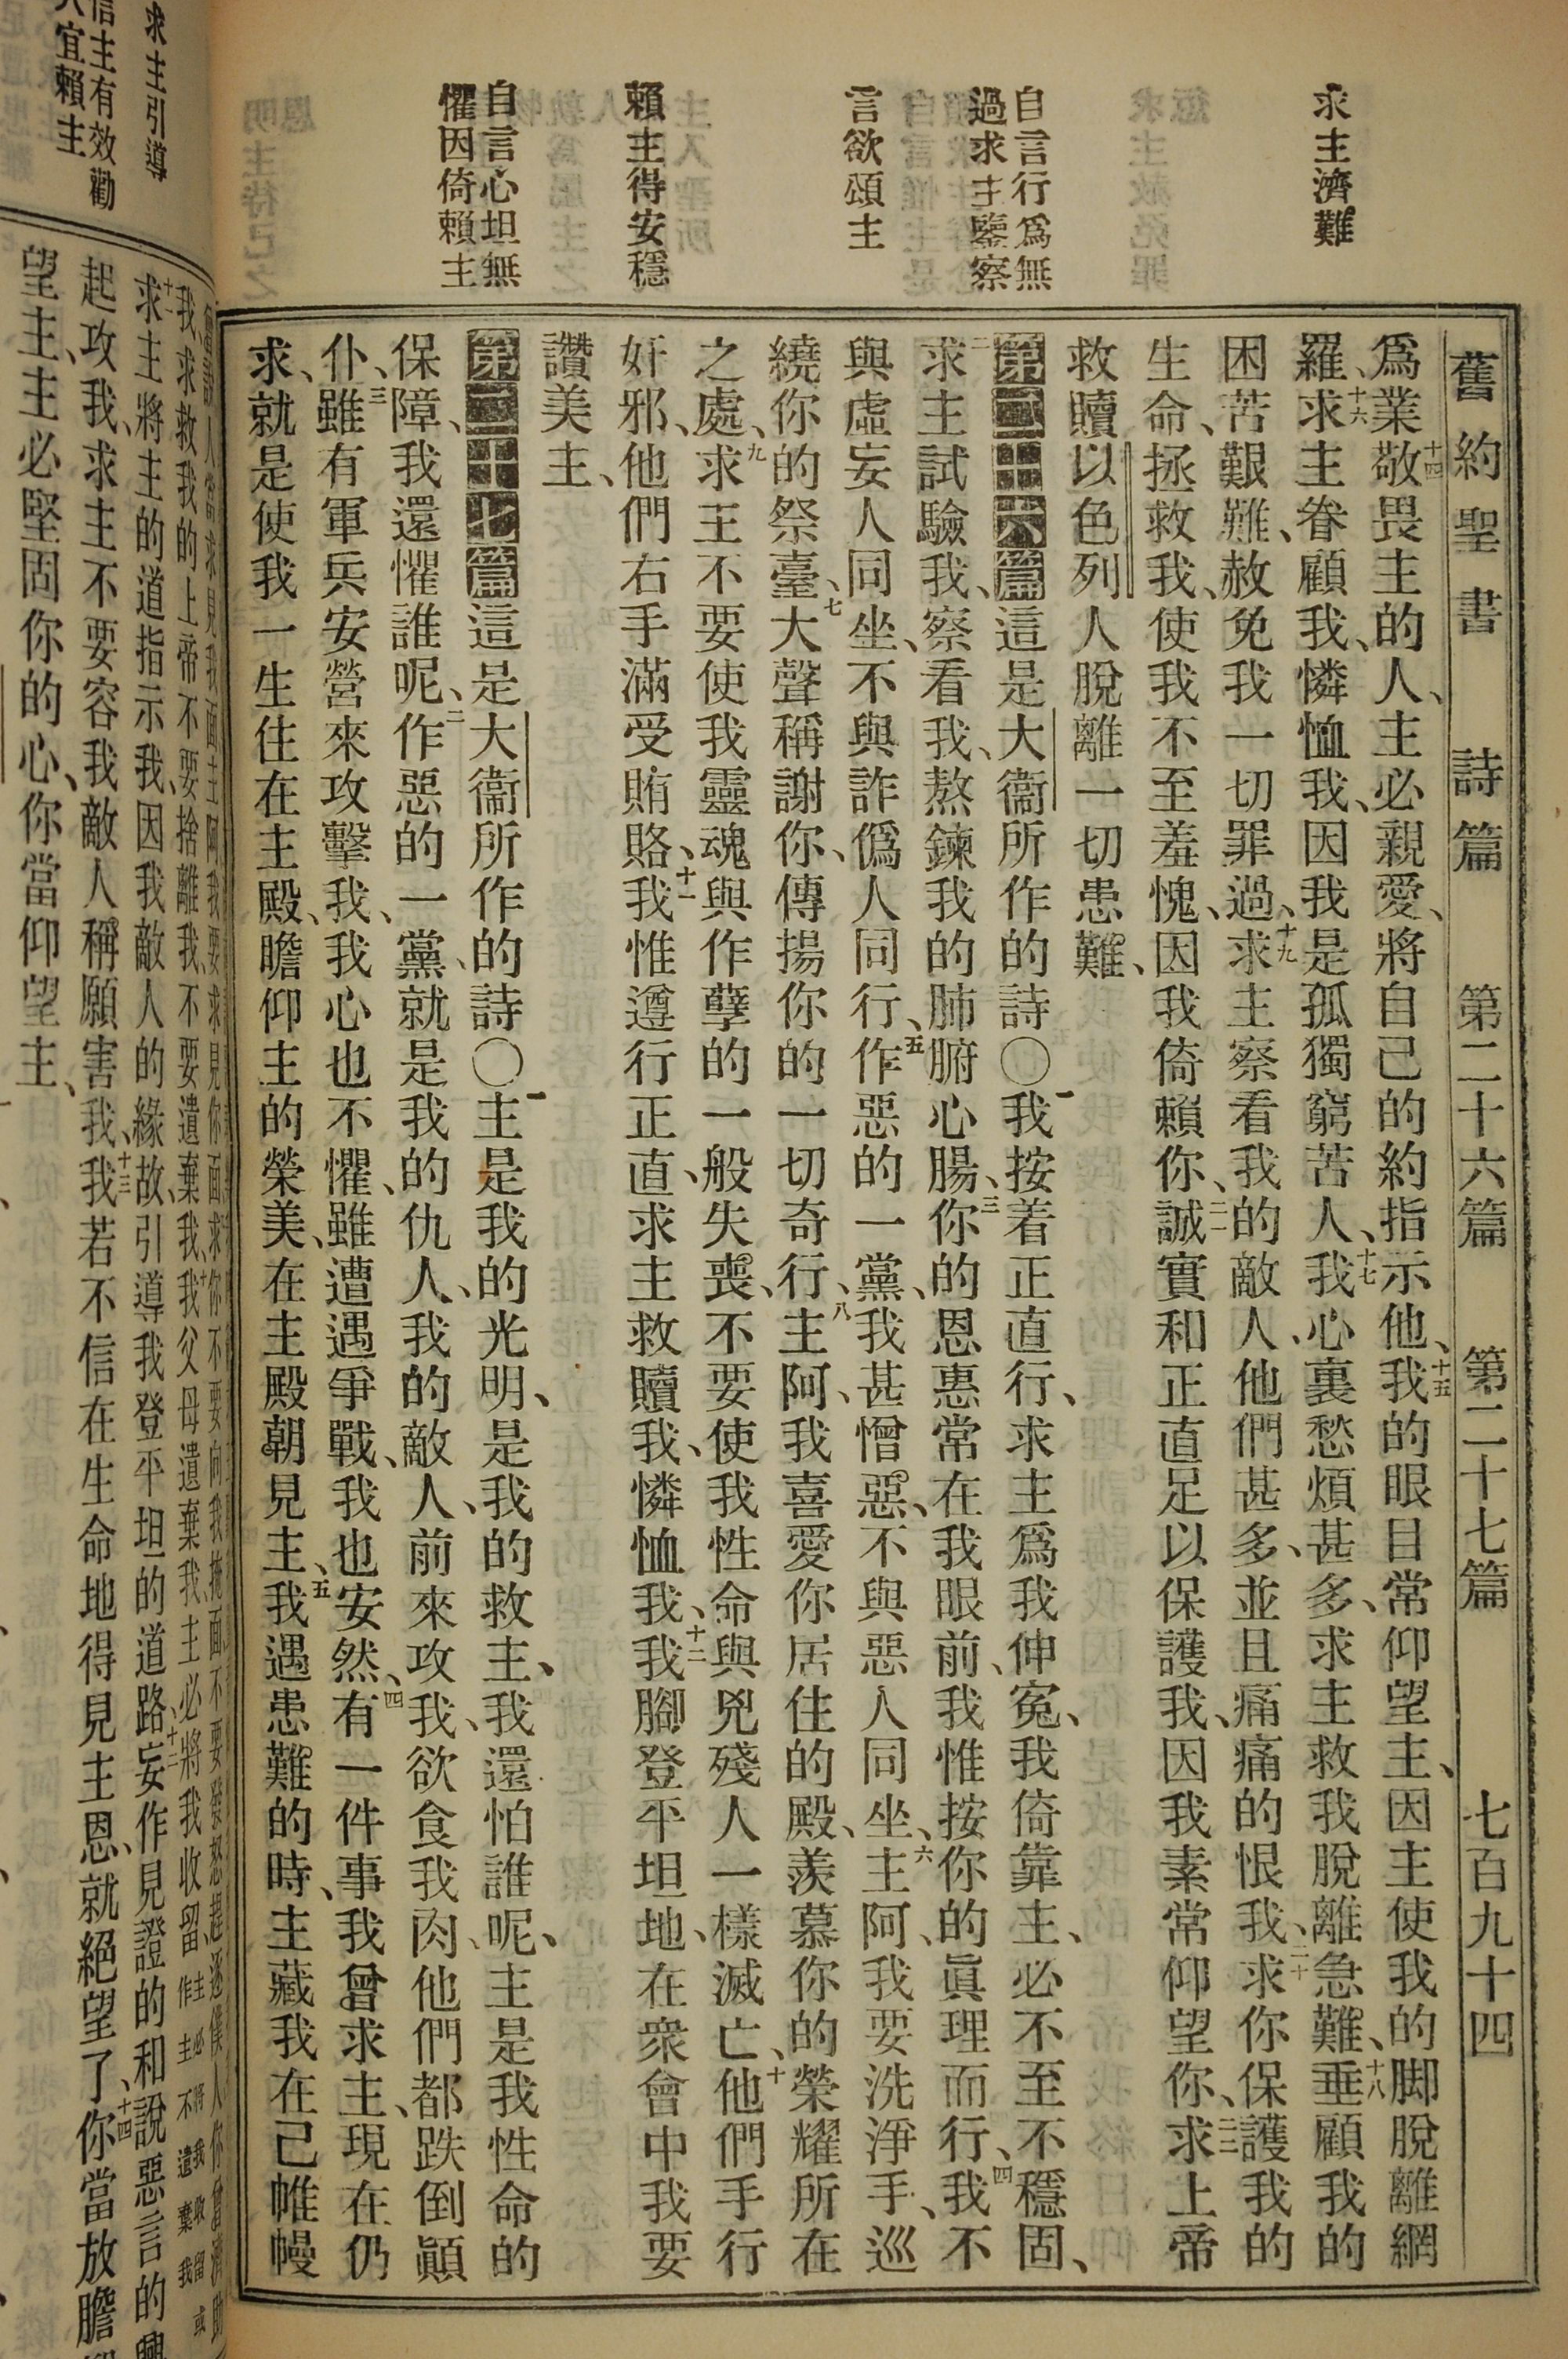 舊約聖書 詩篇 第二十六篇 第二十七篇 七百九十四
求主濟難
自言行爲無
過求主鑒察
言欲頌主
賴主得安穩
自言心坦無
懼因倚賴主
爲業、十四敬畏主的人、主必親愛、將自己的約指示他、十五我的眼目常仰望主、因主使我的脚脫離網
羅、十六求主眷顧我、憐恤我、因我是孤獨窮苦人、十七我心裏愁煩甚多、求主救我脫離急難、十八垂顧我的
困苦艱難、赦免我一切罪過、十九求主察看我的敵人、他們甚多、並且痛痛的恨我、二十求你保護我的
生命、拯救我、使我不至羞愧、因我倚賴你、二一誠實和正直足以保護我、因我素常仰望你、二二求上帝
救贖以色列人脫離一切患難、
第二十六篇這是大衞所作的詩○一我按着正直行、求主爲我伸寃、我倚靠主、必不至不穩固、
二求主試驗我、察看我、熬鍊我的肺腑心腸、三你的恩惠常在我眼前、我惟按你的眞理而行、四我不
與虛妄人同坐、不與詐僞人同行、五作惡的一黨、我甚憎惡、不與惡人同坐、六主阿、我要洗淨手、巡
繞你的祭臺、七大聲稱謝你、傳揚你的一切奇行、八主阿、我喜愛你居住的殿、羨慕你的榮耀所在
之處、九求主不要使我靈魂與作孽的一般失喪、不要使我性命與兇殘人一樣滅亡、十他們手行
奸邪、他們右手滿受賄賂、十一我惟遵行正直、求主救贖我、憐恤我、十二我腳登平坦地、在衆會中我要
讚美主、
第二十七篇這是大衞所作的詩○一主是我的光明、是我的救主、我還怕誰呢、主是我性命的
保障、我還懼誰呢、二作惡的一黨、就是我的仇人、我的敵人、前來攻我、欲食我肉、他們都跌倒顚
仆、三雖有軍兵安營來攻擊我、我心也不懼、雖遭遇爭戰、我也安然、四有一件事我曾求主、現在仍
求、就是使我一生住在主殿、瞻仰主的榮美、在主殿朝見主、五我遇患難的時、主藏我在己帷幔
求主引導
信主有效勸
人宜賴主
我、求救我的上帝不要捨離我、不要遺棄我、十我父母遺棄我、主必將我收留、
十一求主將主的道指示我、因我敵人的緣故、引導我登平坦的道路、十二妄作見證的和說惡言的
起攻我、求主不要容我敵人稱願害我、十三我若不信在生命地得見主恩、就絕望了、十四你當放膽
望主、主必堅固你的心、你當仰望主、